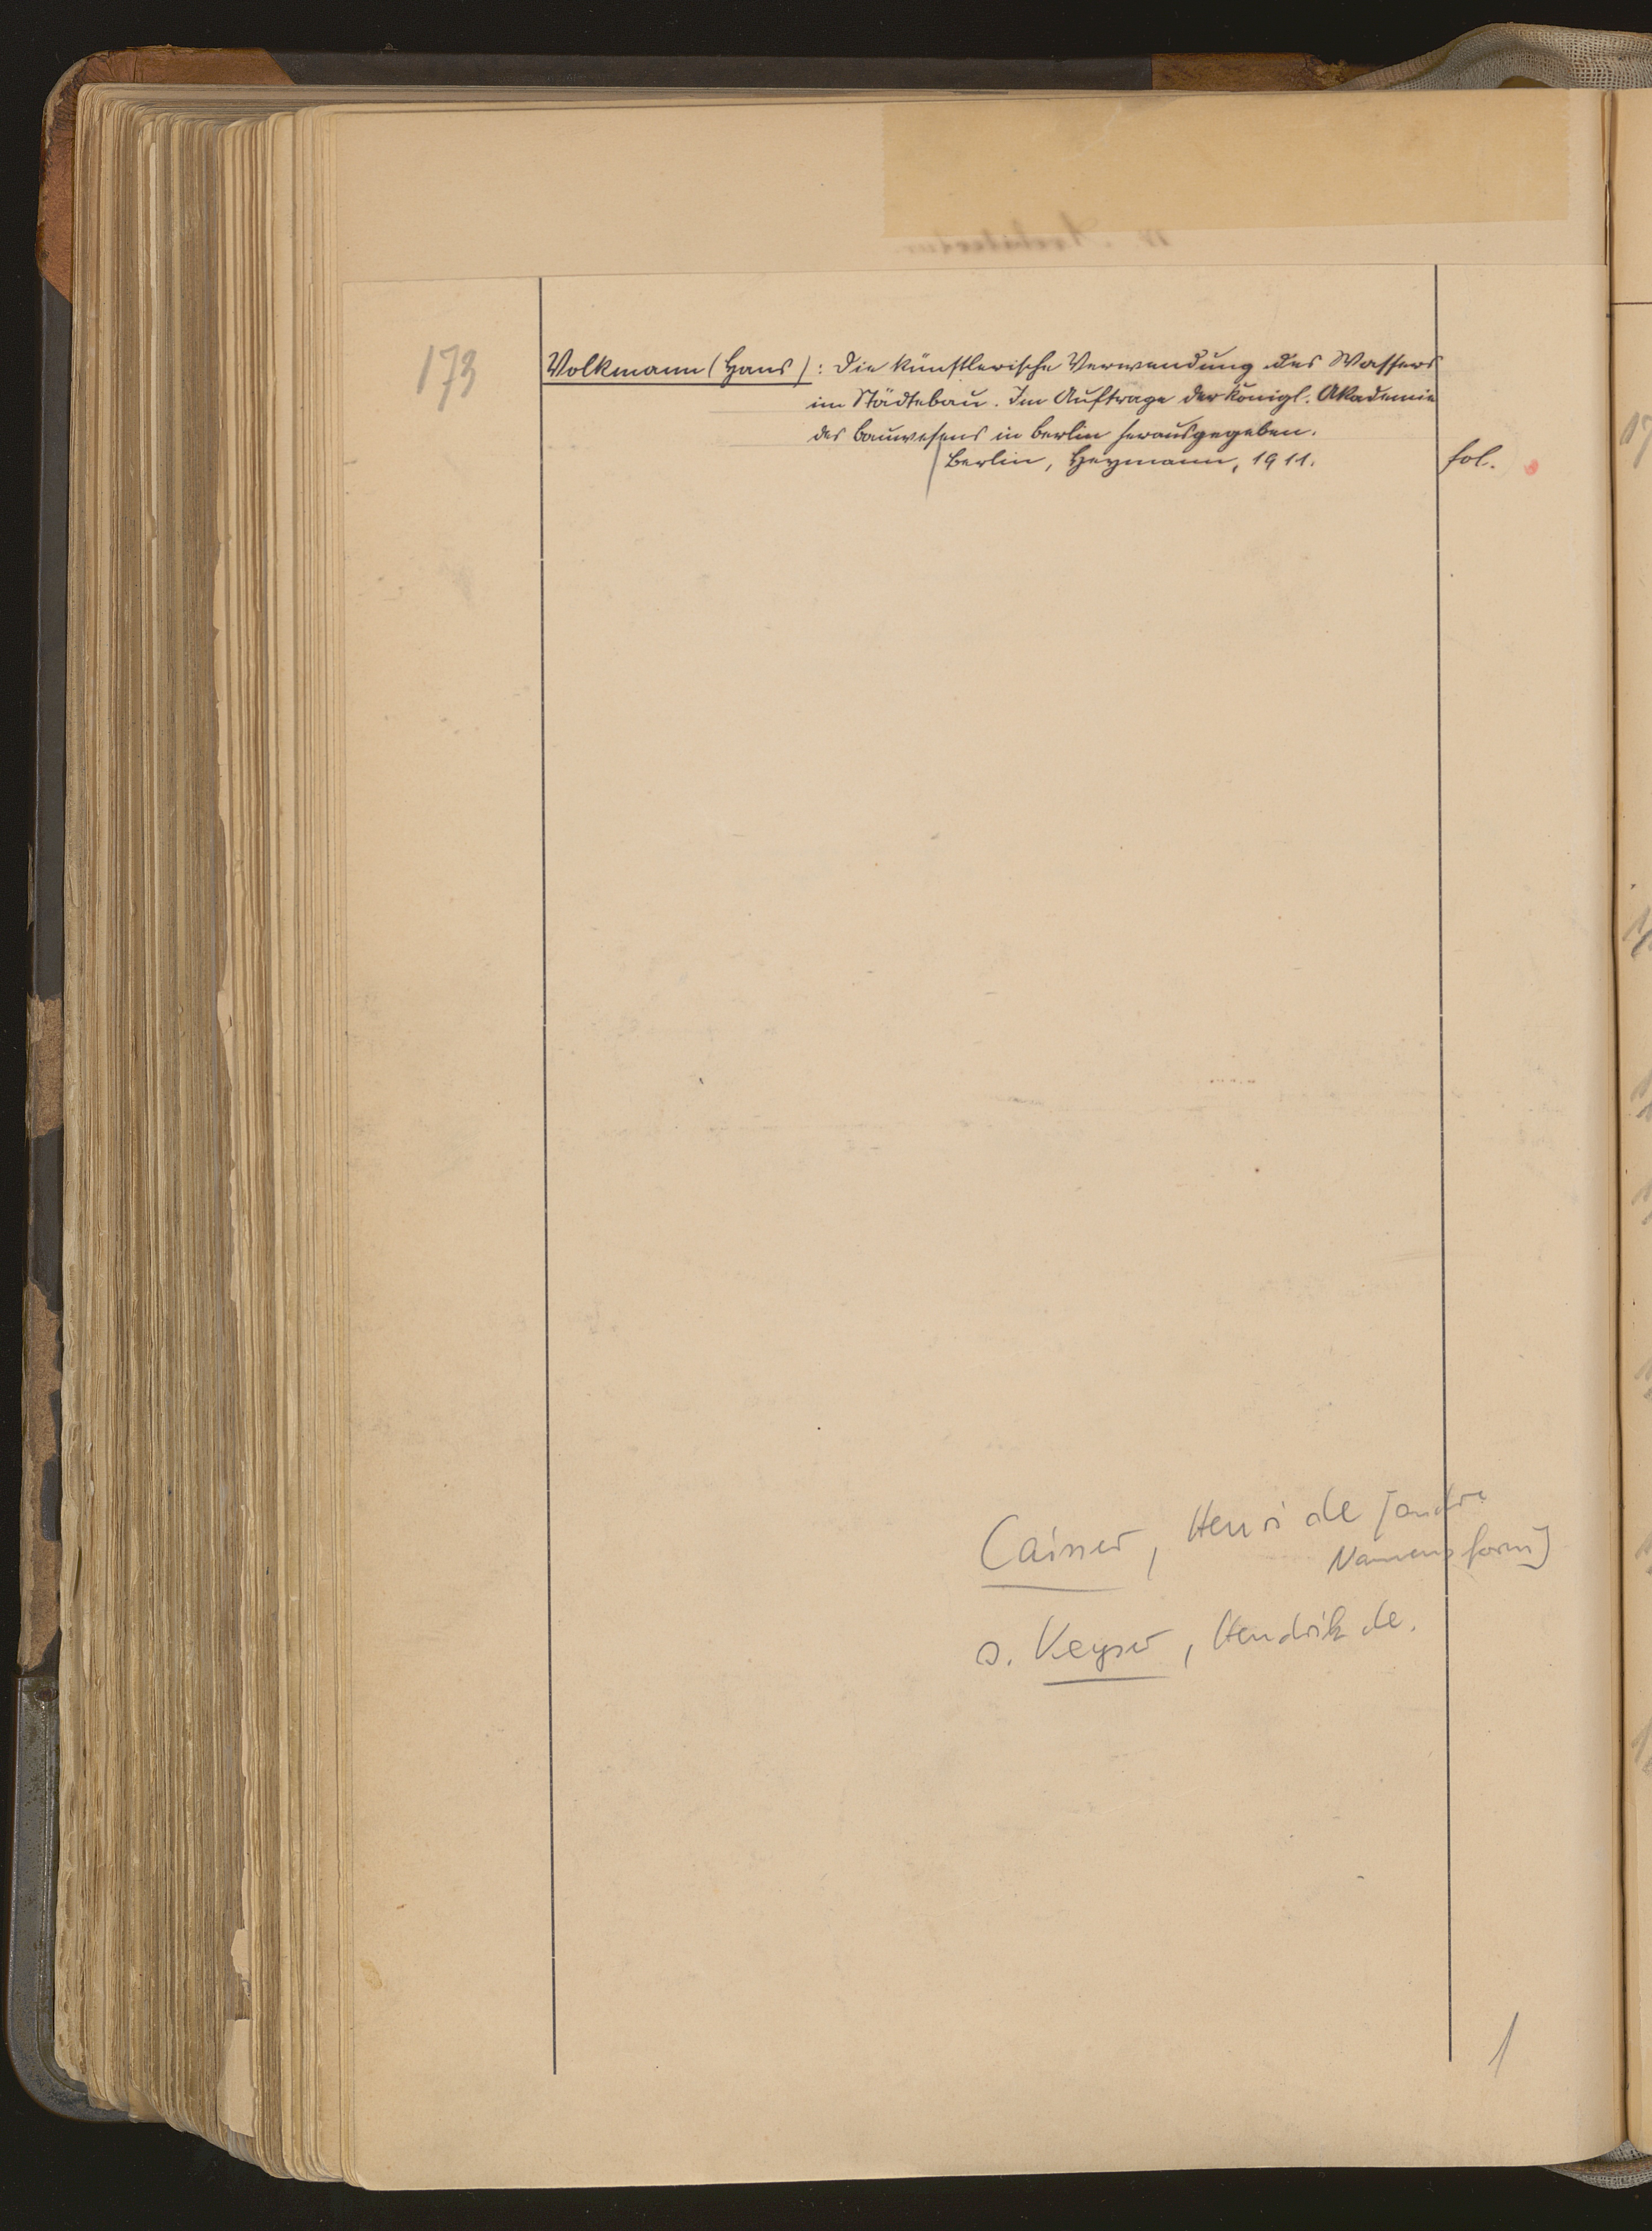 173
Volkmann (Hans): Die künstlerische Verwendung des Wassers
im Städtebau. Im Auftrage der Königl. Akademie
des Bauwesens in Berlin herausgegeben.
Berlin, Heymann, 1911. fol.
Caisser, Henri de [andre
Namensform]
s. Keyser, Hendrik de.
1